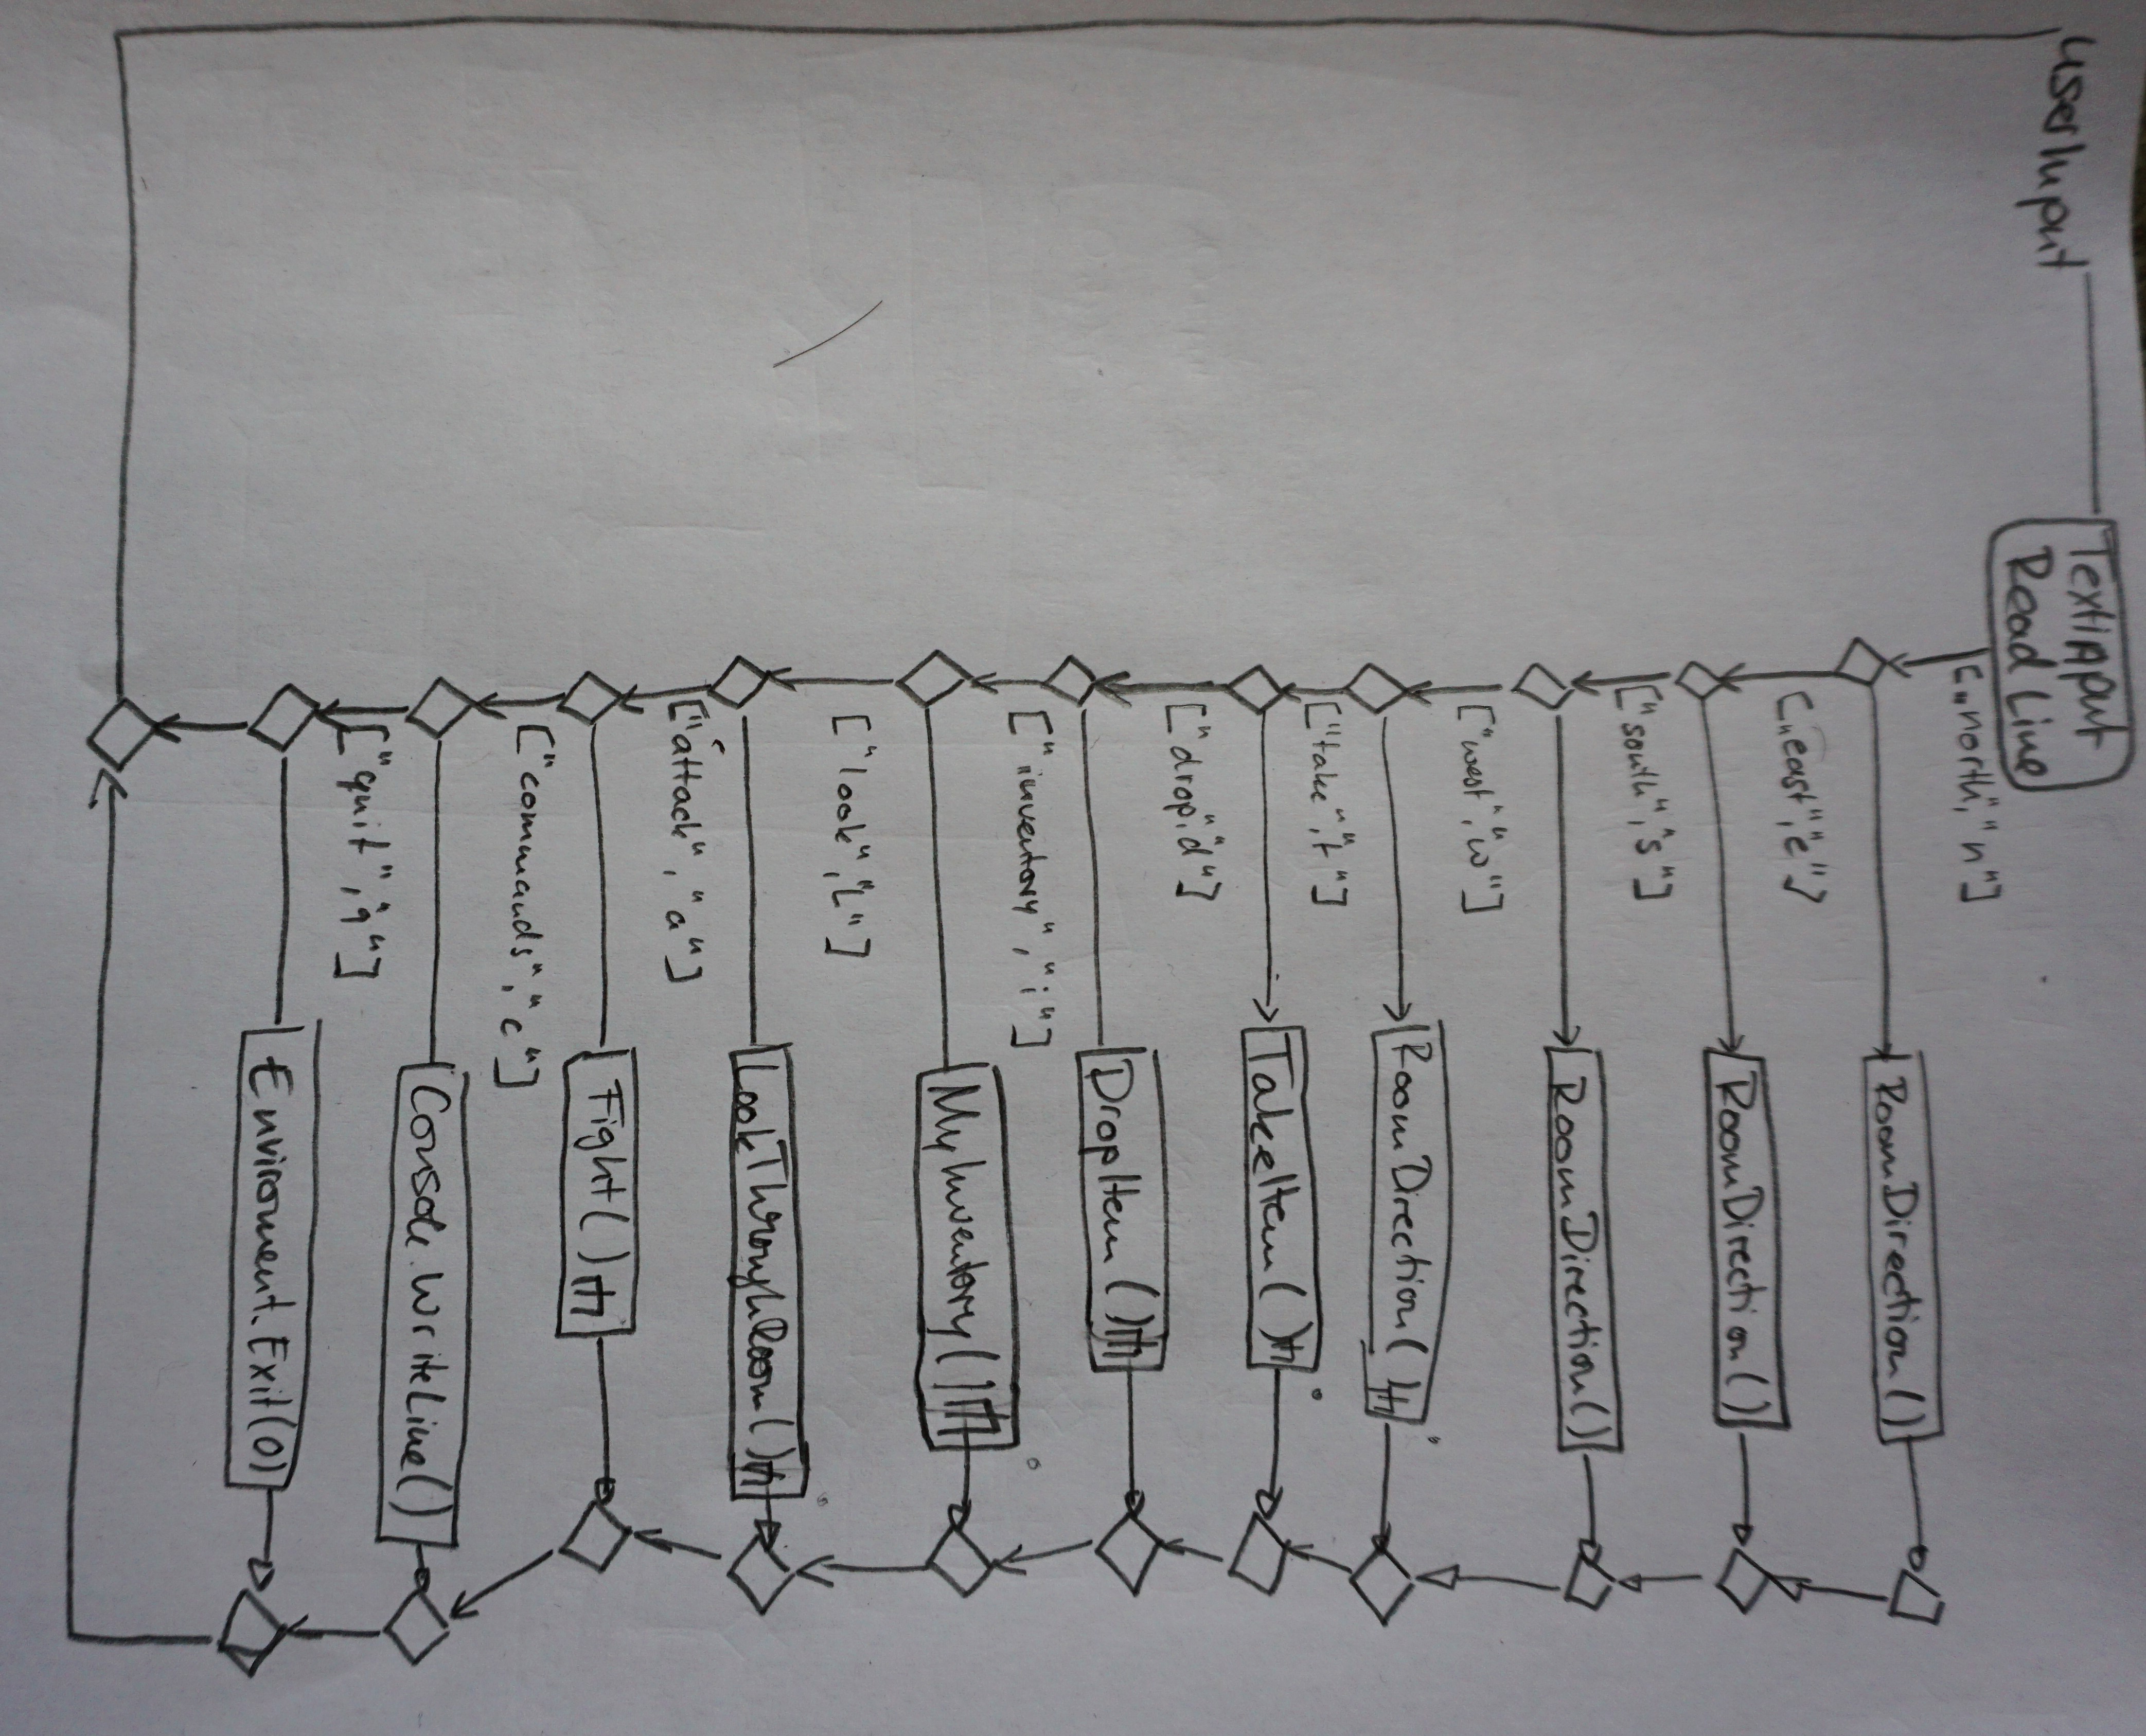 userInput
Textinput
Read Line
[„north", "n"]
RoomDirection()
[„east", "e"]
RoomDirection()
["south", "s"]
RoomDirection()
["west", "w"]
RoomDirection()
["take", "t"]
TakeItem()
["drop", "d"]
DropItem()
["inventory", "i"]
MyInventory()
["look", "L"]
LookThroughRoom()
["attack", "a"]
Fight()
["commands", "c"]
Console.WriteLine()
["quit", "q"]
Enviroment.Exit(0)